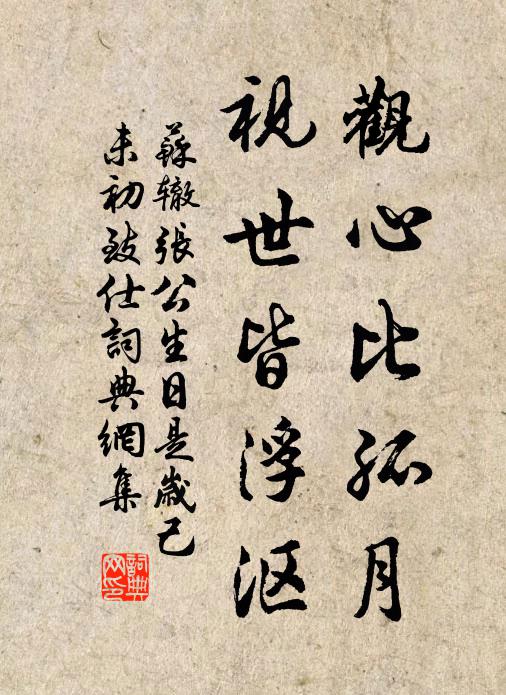 觀心比孤月
視世皆浮沤
蘇辙張公生日是歲己
未初致仕詞典網集
詞典网印